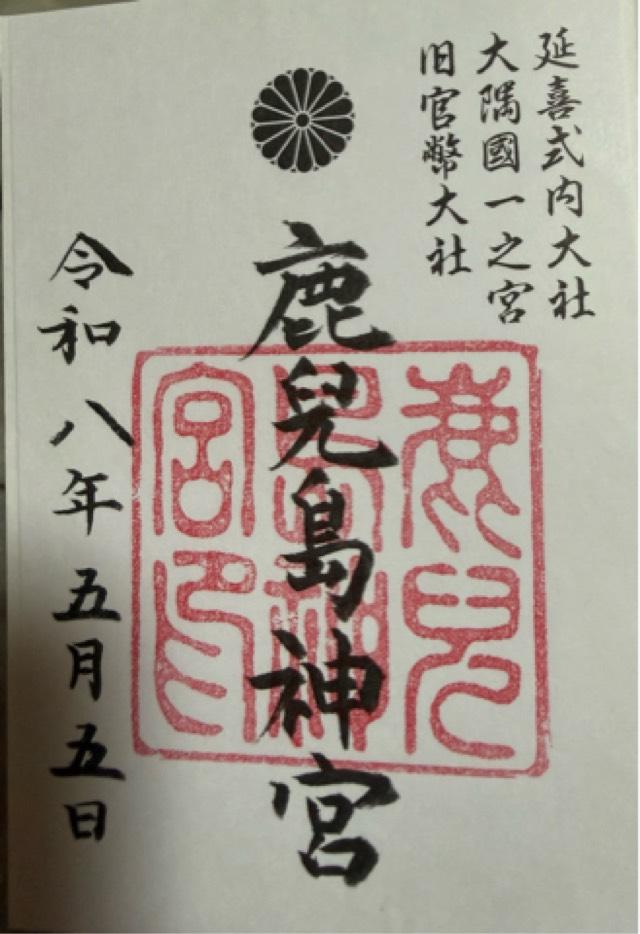 延喜式内大社
大隅國一之宮
旧官幣大社
鹿兒島神宮
鹿兒島神宮印
令和八年五月五日